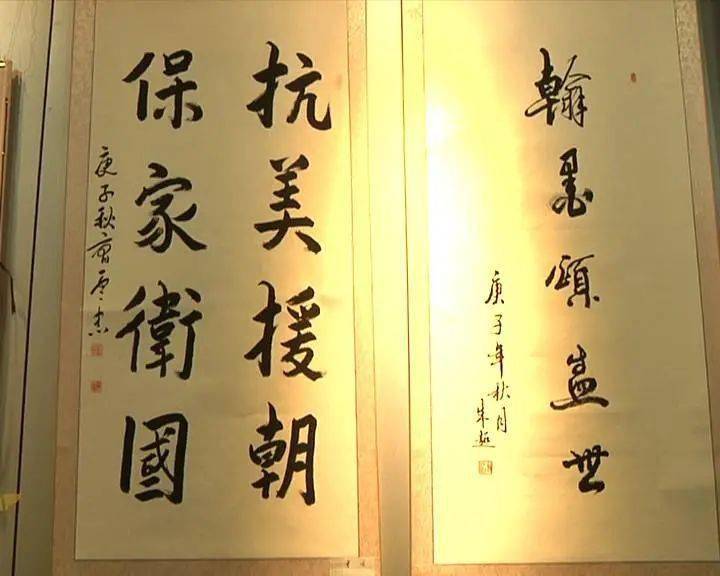 翰墨頌盛世
庚子年秋月
抗美援朝
保家衛國
庚子秋